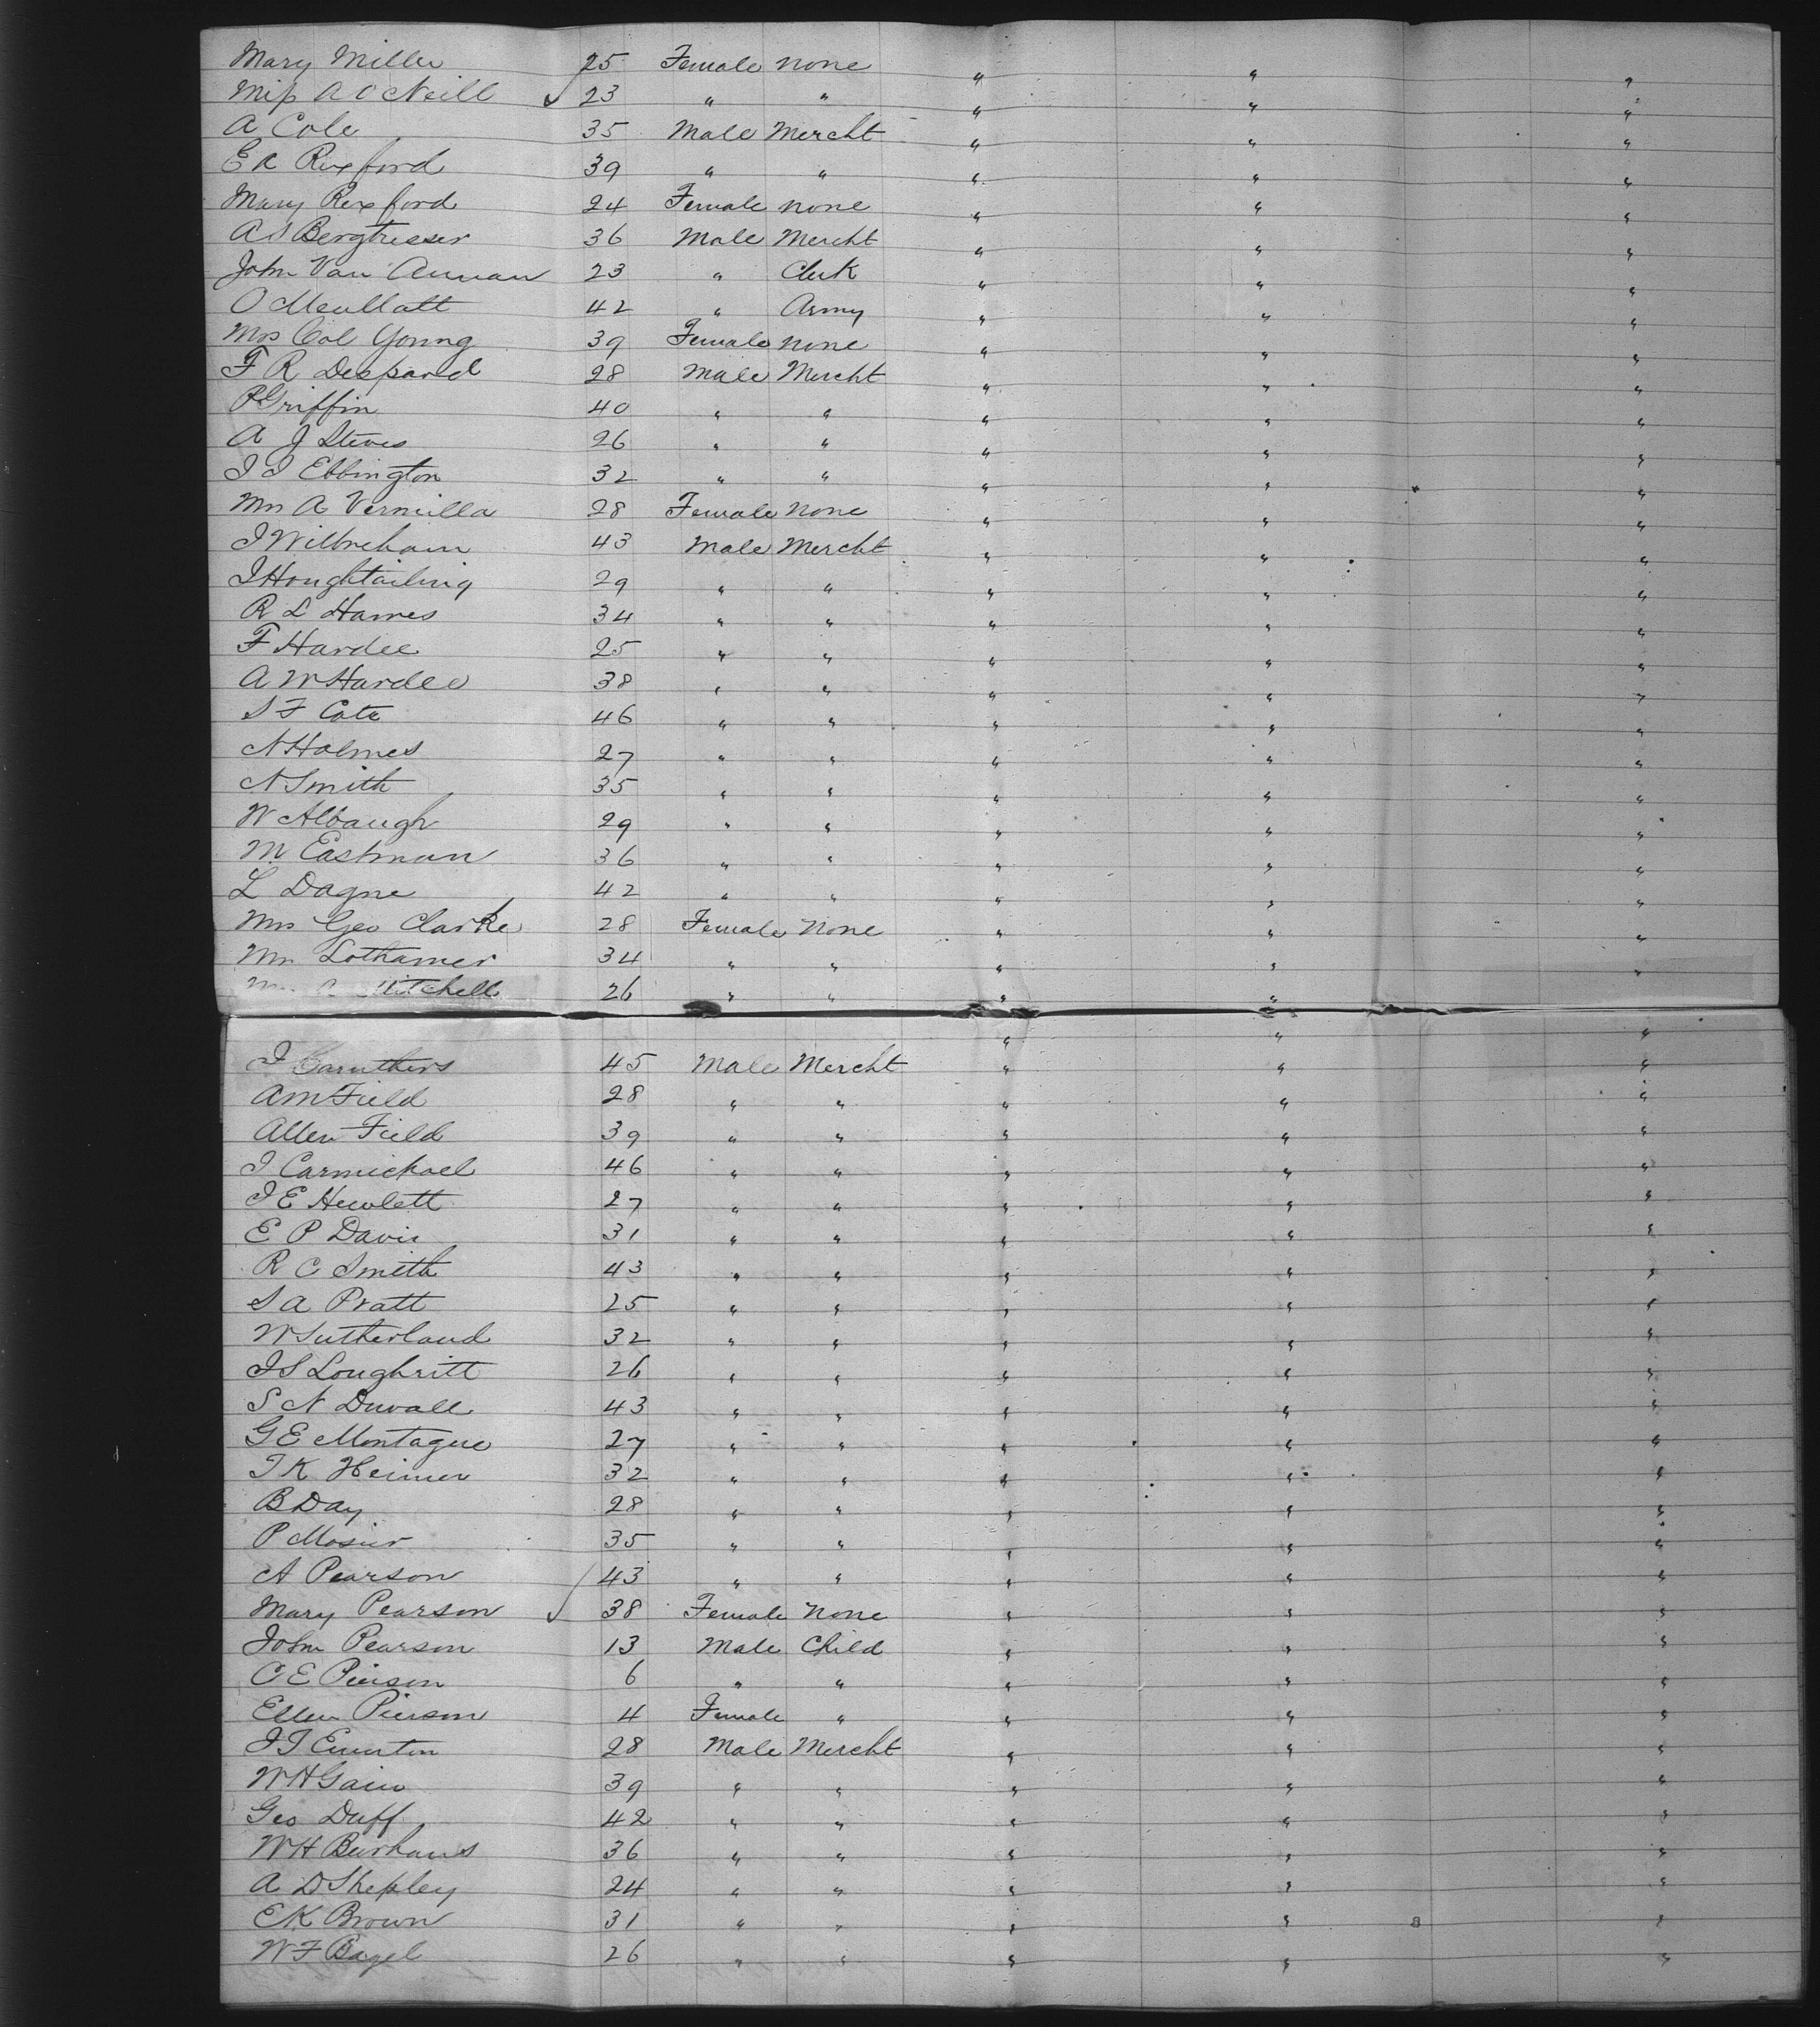 Mary Miller 25 Female None " " "
Miss A O'Neill 23 " " " " "
A Cole 35 Male Mercht " " "
E A Rexford 39 " " " " "
Mary Rexford 24 Female None " " "
A S Bergtresser 36 Male Mercht " " "
John Van Annan 23 " Clerk " " "
O 42 " Army " " "
Mrs Col Young 39 Female None " " "
F R Despard 28 Male Mercht " " "
P Griffin 40 " " " " "
A J Steves 26 " " " " "
J J Ebbington 32 " " " " "
Mrs A Vermilla 28 Female None " " "
J Wilbreham 43 Male Mercht " " "
J Houghtailing 29 " " " " "
R L Hames 34 " " " " "
F Hardee 25 " " " " "
A W Hardee 38 " " " " "
S F Cate 46 " " " " "
N Holmes 27 " " " " "
N Smith 35 " " " " "
W Albaugh 29 " " " " "
M Eastman 36 " " " " "
L Dagne 42 " " " " "
Mrs Geo Clarke 28 Female None " " "
Mrs Lothamer 34 " " " " "
Mitchell 26 " " " " "
" " "
J Caruthers 45 Male Mercht " " "
A M Field 28 " " " " "
Allen Field 39 " " " " "
J Carmichael 46 " " " " "
J E Hewlett 27 " " " " "
E P Davis 31 " " " " "
R C Smith 43 " " " " "
S A Pratt 25 " " " " "
W Sutherland 32 " " " " "
J S Loughritt 26 " " " " "
S N Duvall 43 " " " " "
G E Montague 27 " " " " "
J K Heimer 32 " " " " "
B Day 28 " " " " "
P Mosier 35 " " " " "
A Pearson 43 " " " " "
Mary Pearson 38 Female None " " "
John Pearson 13 Male Child " " "
C E Pierson 6 " " " " "
Ellen Pierson 4 Female " " " "
J T 28 Male Mercht " " "
W H Gain 39 " " " " "
Geo Duff 42 " " " " "
W H Burhans 36 " " " " "
A D Shepley 24 " " " " "
E K Brown 31 " " " " "
W F Bagel 26 " " " " "